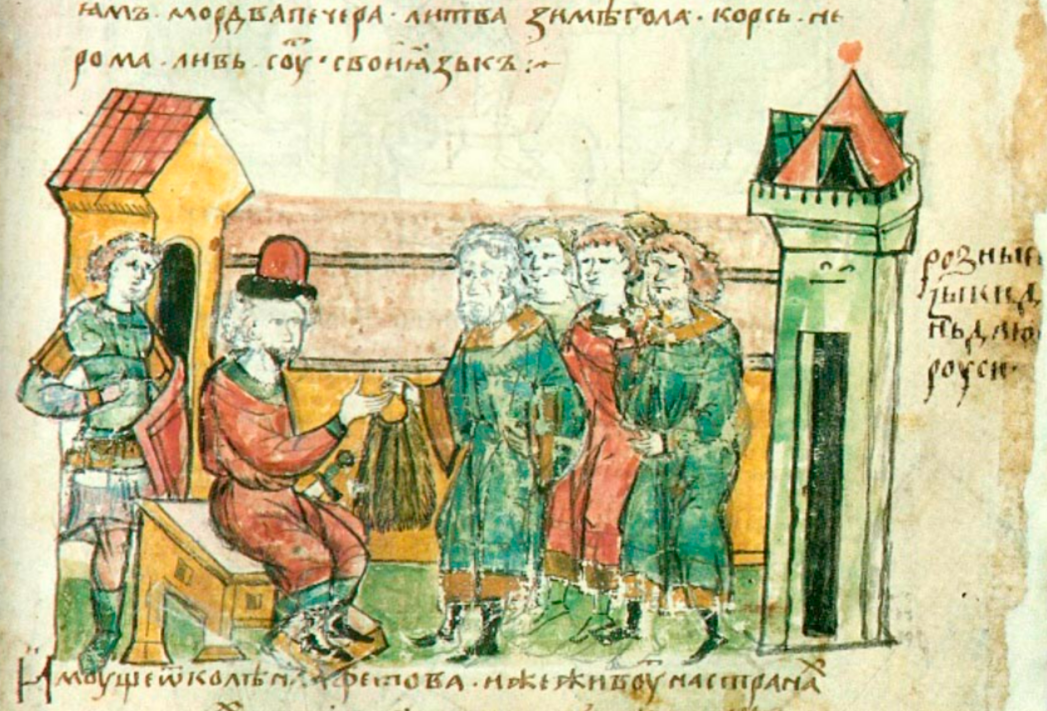 ꙗмъ· мордва печера· литва зимѣгола· корсь· не
рома· ливь· соуⷮ· свои ꙗзыкъ:~
розныѣ
ꙗзыки д
роуси·
Имоуще ѿ колѣна афетова· иже живоуⷮ на странаⷯ